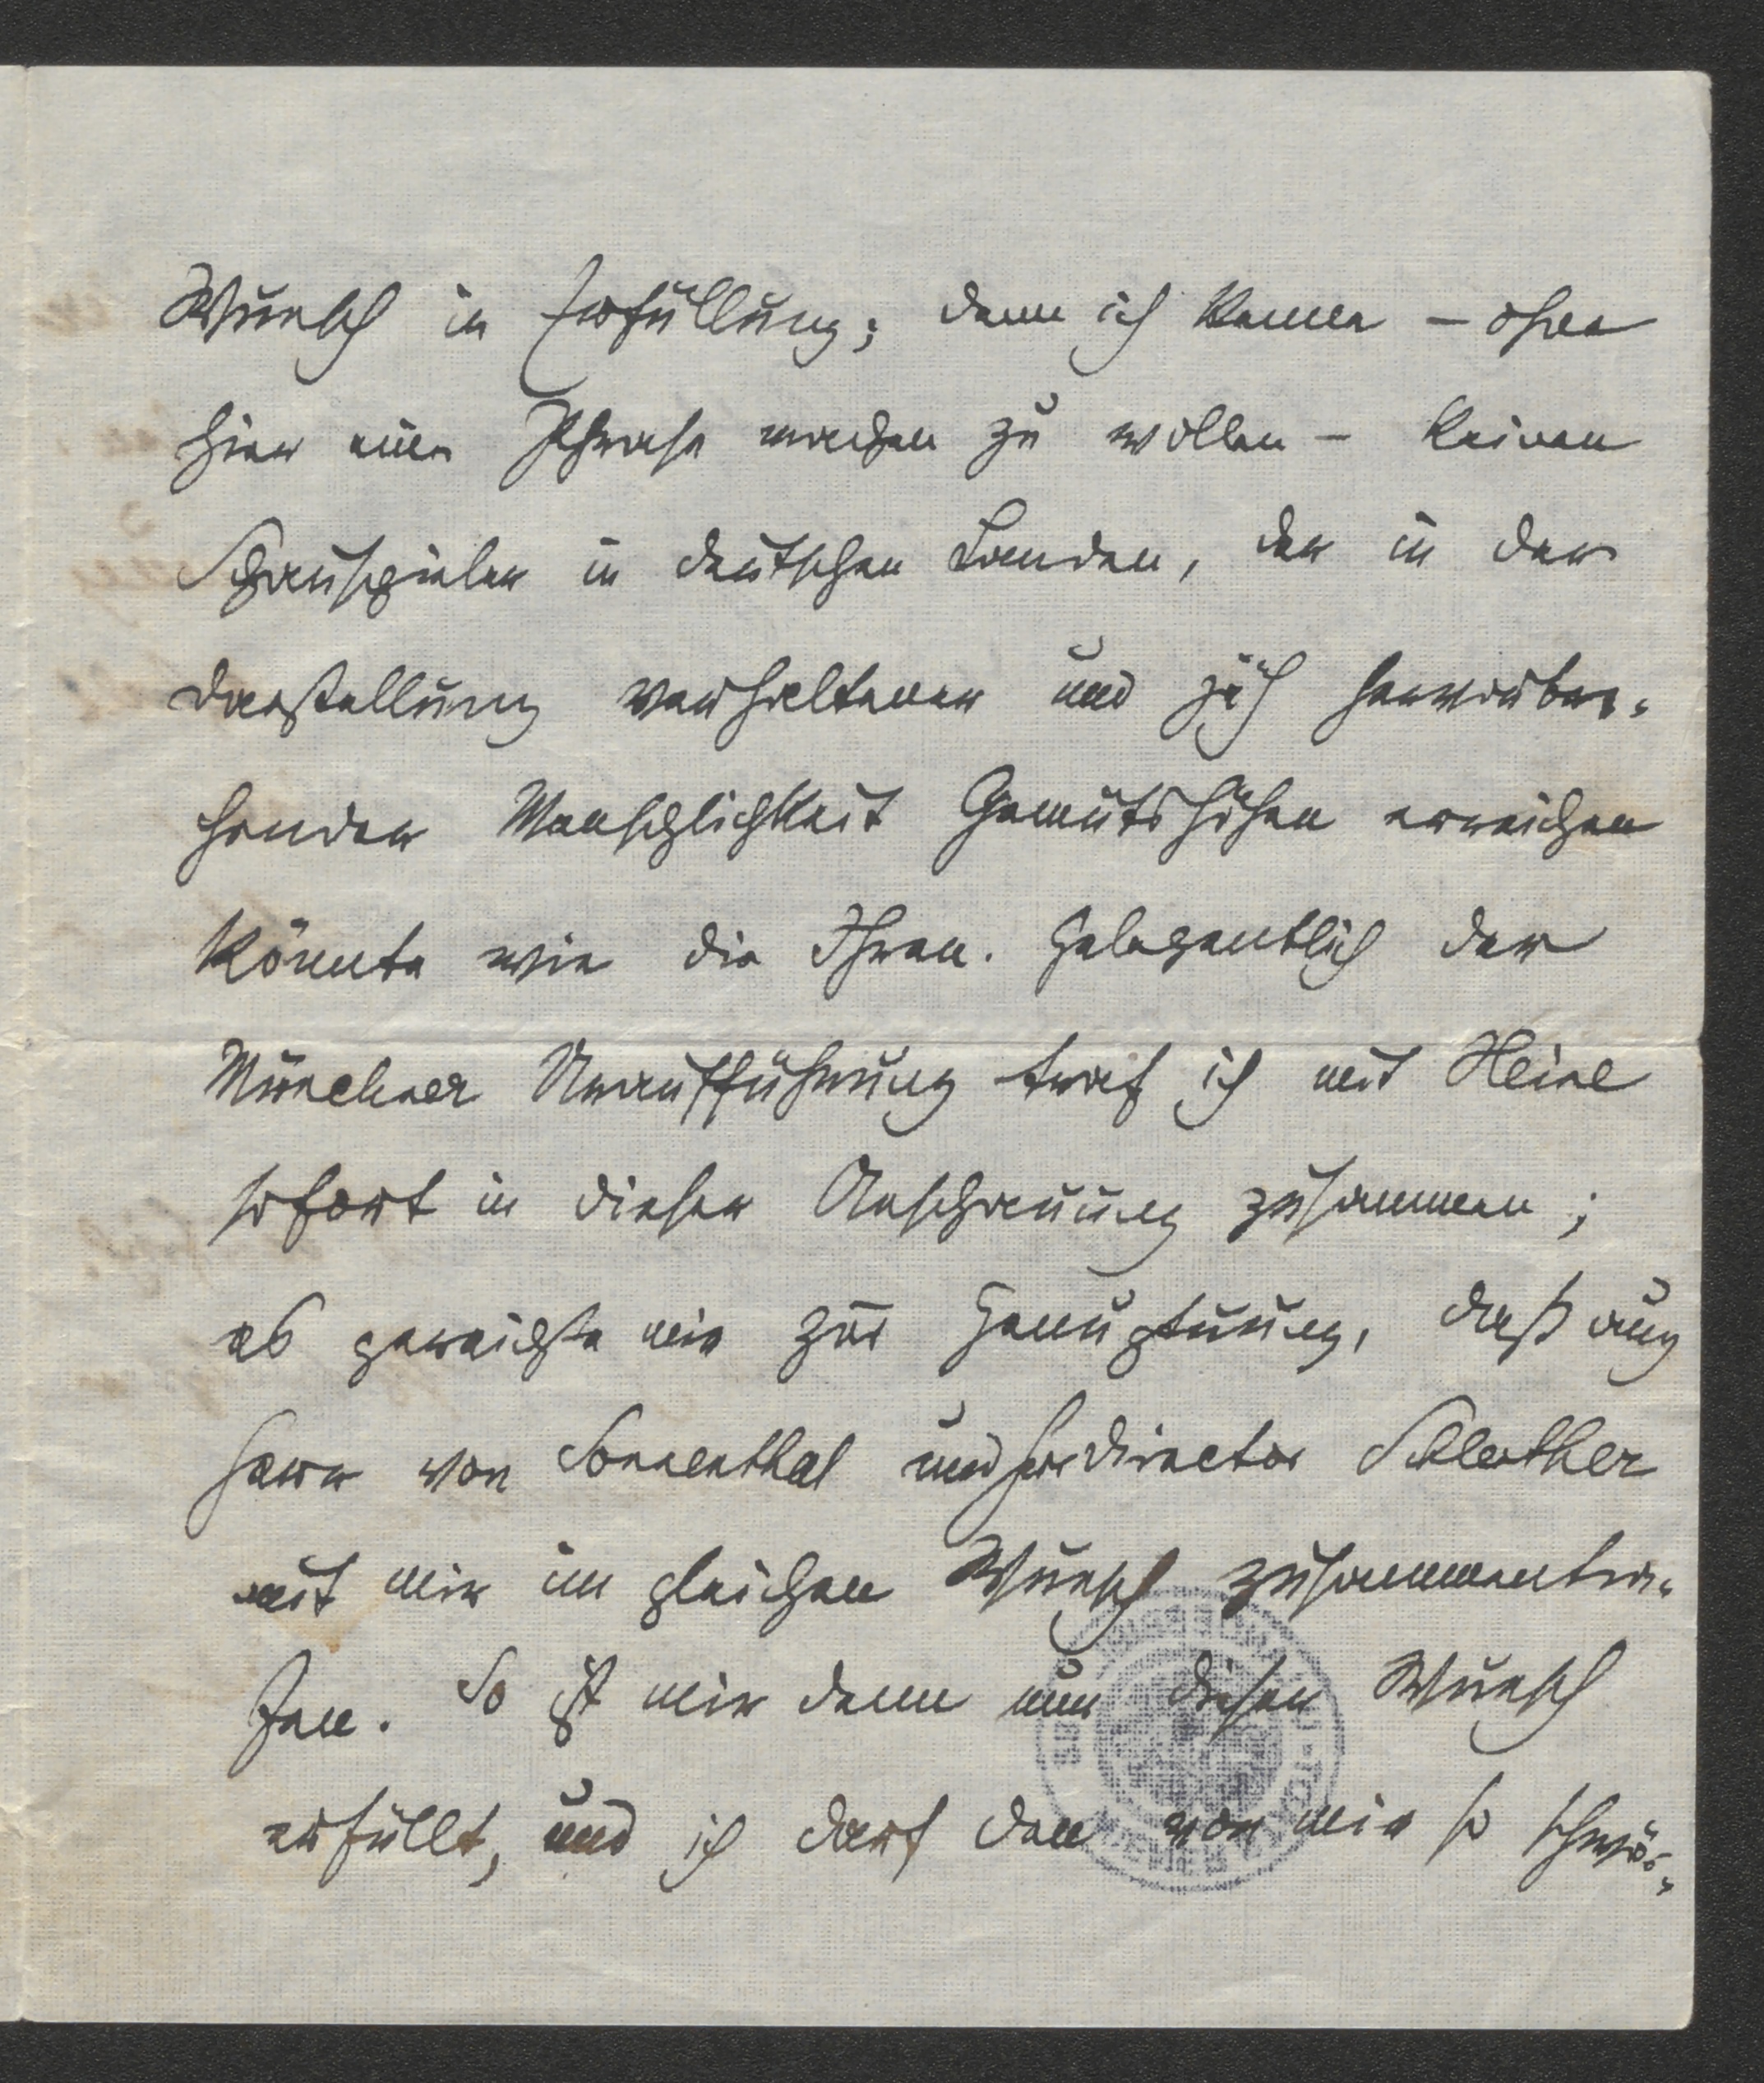 Wunsch in Erfüllung; denn ich kenne – ohne
hier eine Phrase machen zu wollen – keinen
Schauspieler in deutschen Landen, der in der
Darstellung verhaltener und jäh hervorbre-
chender Menschlichkeit Gemütshöhen erreichen
könnte wie die Ihren. Gelegentlich der
Münchner Uraufführung traf ich mit Heine
sofort in dieser Anschauung zusammen;
es gereichte mir zur Genugtuung, daß auch
Herr von Sonnenthal und Herr Director Schlenther
mit mir im gleichen Wunsch zusammentra-
fen. So ist mir denn nun dieser Wunsch
erfüllt, und ich darf den von mir so schwär-